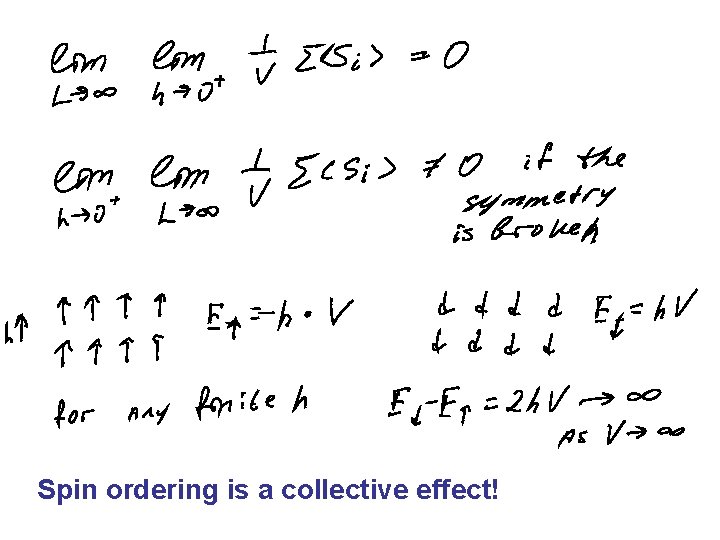 lim L→∞ lim h→0⁺ 1/V Σ⟨Sᵢ⟩ = 0
lim h→0⁺ lim L→∞ 1/V Σ⟨Sᵢ⟩ ≠ 0 if the
symmetry
is broken
h↑ ↑ ↑ ↑ ↑ E↑ = -h · V ↓ ↓ ↓ ↓ E↓ = hV
↑ ↑ ↑ ↑ ↓ ↓ ↓ ↓
for any finite h E↓-E↑ = 2hV → ∞
as V→∞
Spin ordering is a collective effect!